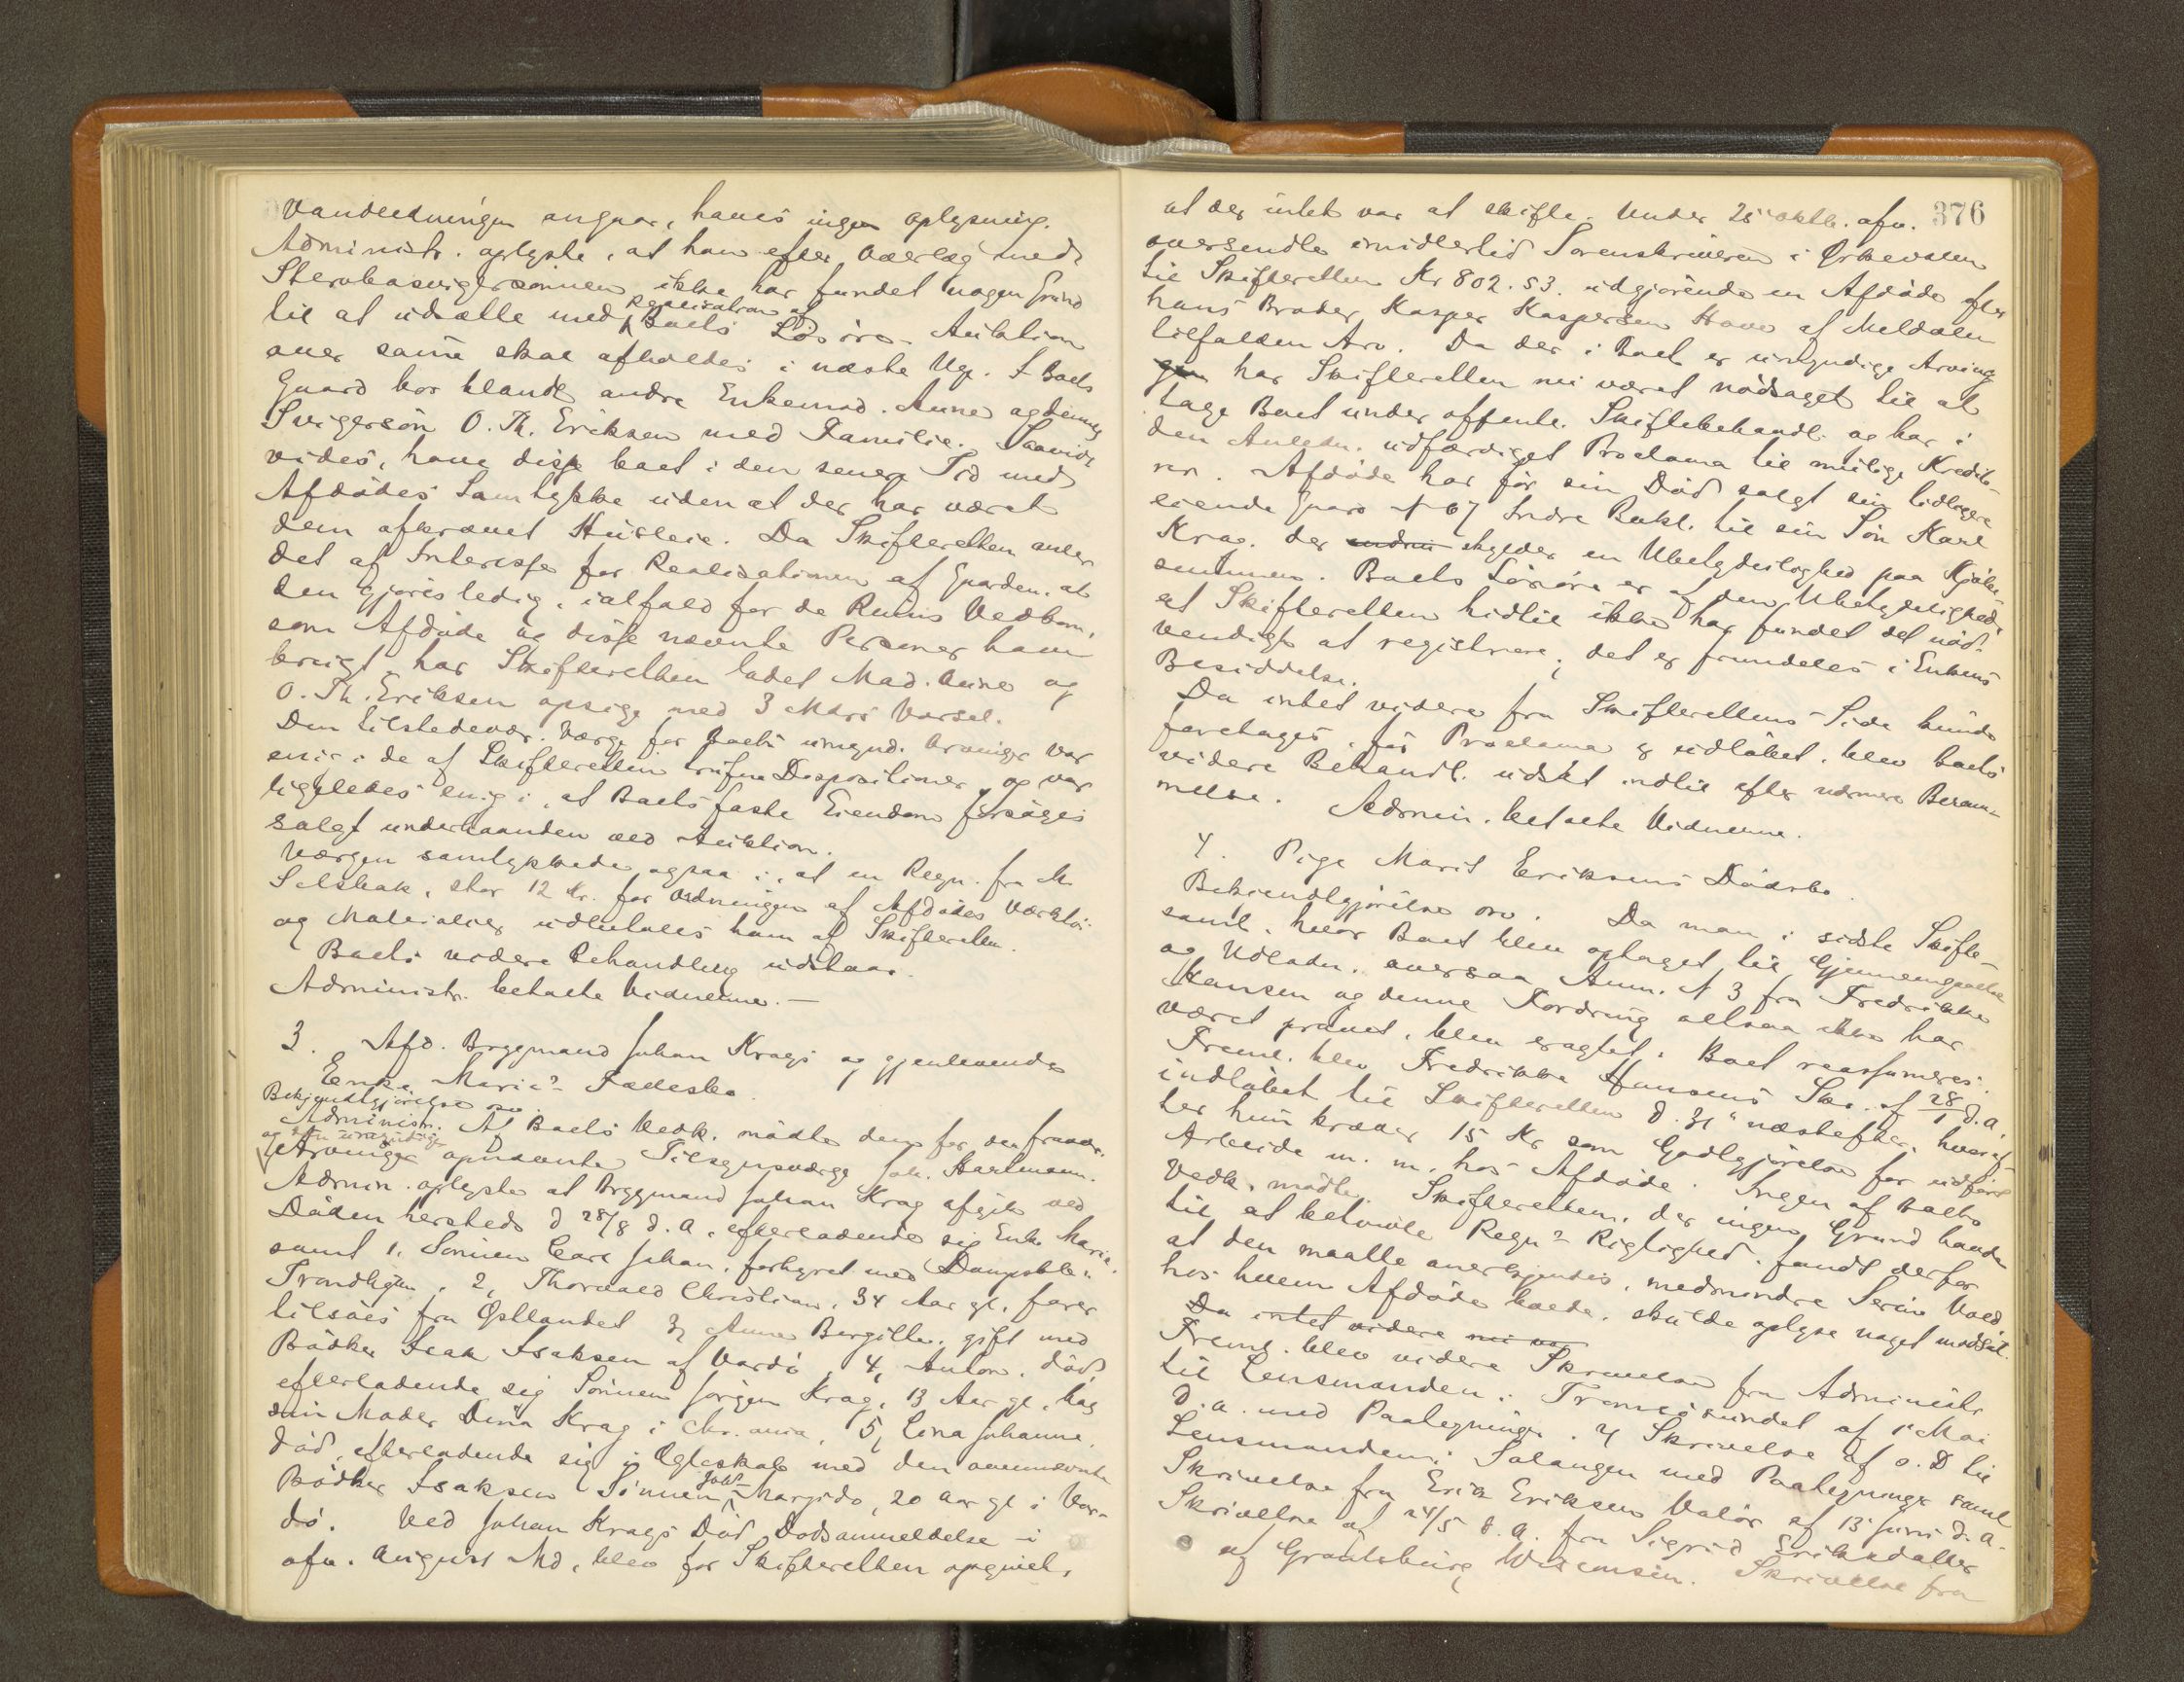 Vandledningen angaar, haves ingen oplysning.
Administr. oplyste, at han efter Overlæg med
Stervbosvigersønnen ikke har fundet nogen Grund
til at udsætte med Realisation af Boets Løsøre. Auktion
over samme skal afholdes i næste Uge. I Boets
Gaard bor blandt andre Enkemad. Aune og dennes
Svigersøn O. Th. Eriksen med Familie. Saavidt
vides, have disse boet i den senere Tid med
Afdødes Samtykke uden at der har været
dem afkrævet Husleie. Da Skifteretten anser
det af Interesse for Realisationen af Gaarden, at
den gjøres ledig, ialfald for de Rums Vedkom.
som Afdøde og disse nævnte Personer have
brugt, har Skifteretten ladet Mad. Aune og
O. Th. Eriksen opsige med 3 Mdrs Varsel.
Den tilstedevær. Værge for Boets umynd. Arvinger var
enig i de af Skifteretten trufne Dispositioner, og var
ligeledes enig i, at Boets faste Eiendom forsøges
solgt underhaanden ved Auktion.
Værgen samtykkede ogsaa i, at en Regn. fra M.
Selsbak, stor 12 Kr. for Ordningen af Afdødes Værktøi
og Materialier udbetales ham af Skifteretten.
Boets videre Behandling udstaar.
Administr. betalte Vidnerne. —
3. Afd. Brygmand Johan Krags og gjenlevende
Enke Marie's Fællesbo.
Bekjendtgjørelse osv.
Administr. Af Boets Vedk. mødte den for den fravær.
og den umyndige
Arvinger opnævnte Tilsynsværge Joh. Hartmann.
Admin. oplyste at Brygmand Johan Krag afgik ved
Døden hersteds d 28/8 d. A. efterladende sig Enke Marie,
samt 1, Sønnen Carl Johan, forhyret med Dampskb. "
Trondhjem, 2, Thorvald Christian, 34 Aar gl. farer
tilsøes fra Østlandet 3, Anne Bergitte, gift med
Bødker Isak Isaksen af Vardø, 4, Anton, død,
efterladende sig Sønnen Jørgen Krag, 13 Aar gl. hos
sin Moder Dina Krag i Chr.ania, 5, Lina Johanne,
død, efterladende sig i Ægteskab med den ovennævnte
Bødker Isaksen Sønnen Johs Margido, 20 Aar gl i Var-
dø. Ved Johan Krags Død, Dødsanmeldelse i
afv. August Md, blev for Skifteretten opgivet,
376
at der intet var at skifte. Under 25 Oktb. afv.
oversendte imidlertid Sorenskriveren i Orkedalen
til Skifteretten Kr 802.53. udgjørende en Afdøde efter
hans Broder Kasper Kaspersen Hove af Meldalen
tilfalden Arv. Da der i Boet er umyndige Arving
har Skifteretten nu været nødsaget til at
tage Boet under offentl. Skiftebehandl. og har i
den Anledn. udfærdiget Proclama til mulige Kredito-
rer. Afdøde har før sin Død solgt sin tidligere
eiende Gaard N 67 Indre Bakl. til sin Søn Karl
Krag. der endnu skylder en Ubetydelighed paa Kjøbe-
summen. Boets Løsøre er af den Ubetydelighed,
at Skifteretten hidtil ikke har fundet det nød-
vendigt at registrere; det er fremdeles i Enkens
Besiddelse.
Da intet videre fra Skifterettens Side kunde
foretages, før Proclama er udløbet, blev Boets
videre Behandl. udsat indtil efter nærmere Beram-
melse. Admin. betalte Vidnerne.
4. Pige Marit Eriksens Dødsbo.
Bekjendtgjørelse osv. Da man i sidste Skifte-
saml. hvor Boet blev optaget til Gjennemgaaelse
og Udlodn. oversaa Anm. N 3 fra Fredrikke
Hansen og denne Fordring altsaa ikke har
været prøvet, blev eragtet: Boet reassumeres.
Freml. blev Fredrikke Hansens Skr. af 28/1 d. A.
indløbet til Skifteretten d. 31" næstefter, hvoref-
ter hun kræver 15 Kr som Godtgjørelse for udført
Arbeide m. m. hos Afdøde. Ingen af Boets
Vedk. mødte. Skifteretten, der ingen Grund havde
til at betvivle Regn's Rigtighed, fandt derfor
at den maatte anerkjendes, medmindre Serine Vold,
hos hvem Afdøde boede, skulde oplyse noget modsat.
Da intet videre nu var
Freml. blev videre Skrivelse fra Administr
til Lensmanden i Tromsøsundet af 1 Mai
d. A. med Paategninger. 4 Skrivelse af s. D til
Lensmanden i Salangen med Paategninger samt
Skrivelse fra Erik Eriksen Valør af 13 Juni d. A.
Skrivelse af 24/5 d. A. fra Sigrid Eriksdatter
af Grantsburg Wisconsin. Skrivelse fra